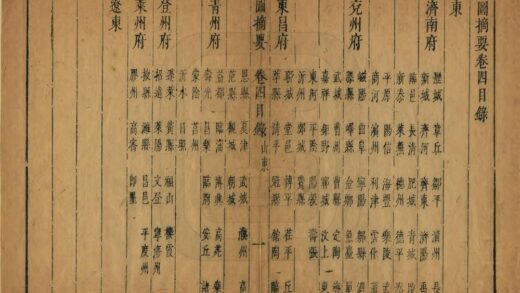 圖摘要卷四目錄
東
濟南府
歷城 章丘 鄒平 淄川 長
新城 齊河 齊東 濟陽
臨邑 長清 肥城 青城
新泰 萊蕪 德州 德平
平原 陽信 海豐 樂陵
商河 濱州 利津 霑化
兗州府
滋陽 曲阜 寧陽 鄒縣
滕縣 嶧縣 金鄉 魚臺
曹州 曹縣 定陶
嘉祥 鉅野 汶上 東
東阿 平陰 陽穀 壽張
沂州 郯城 費縣
東昌府
聊城 堂邑 博平 茌平
莘縣 清平 冠縣 館陶
圖摘要 卷四目錄 山東 一
恩縣 夏津 武城 濮州
范縣 觀城 朝城
青州府
益都 臨淄 博興 高苑 樂
壽光 昌樂 臨朐 安丘 諸
蒙陰 莒州
沂水 日照
登州府
蓬萊 黃縣 福山 棲霞
招遠 萊陽 文登 寧海州
萊州府
掖縣 濰縣 昌邑 平度州
膠州 高密 即墨
遼東